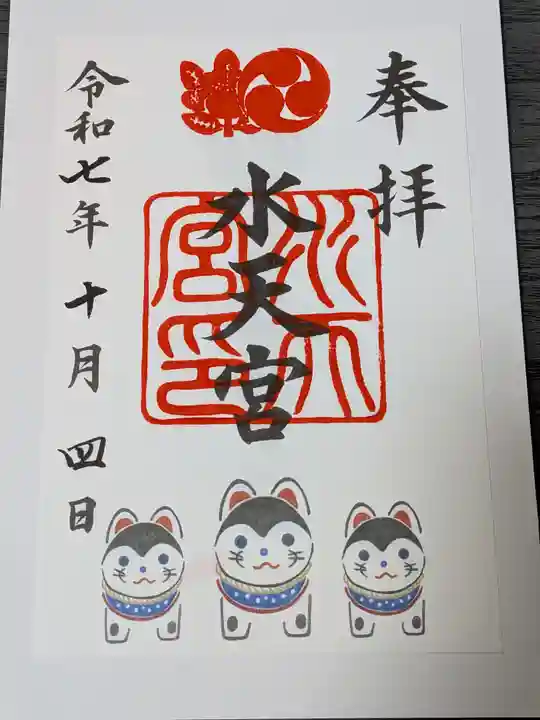 奉拝
水天宮
水天宮印
令和七年十月四日